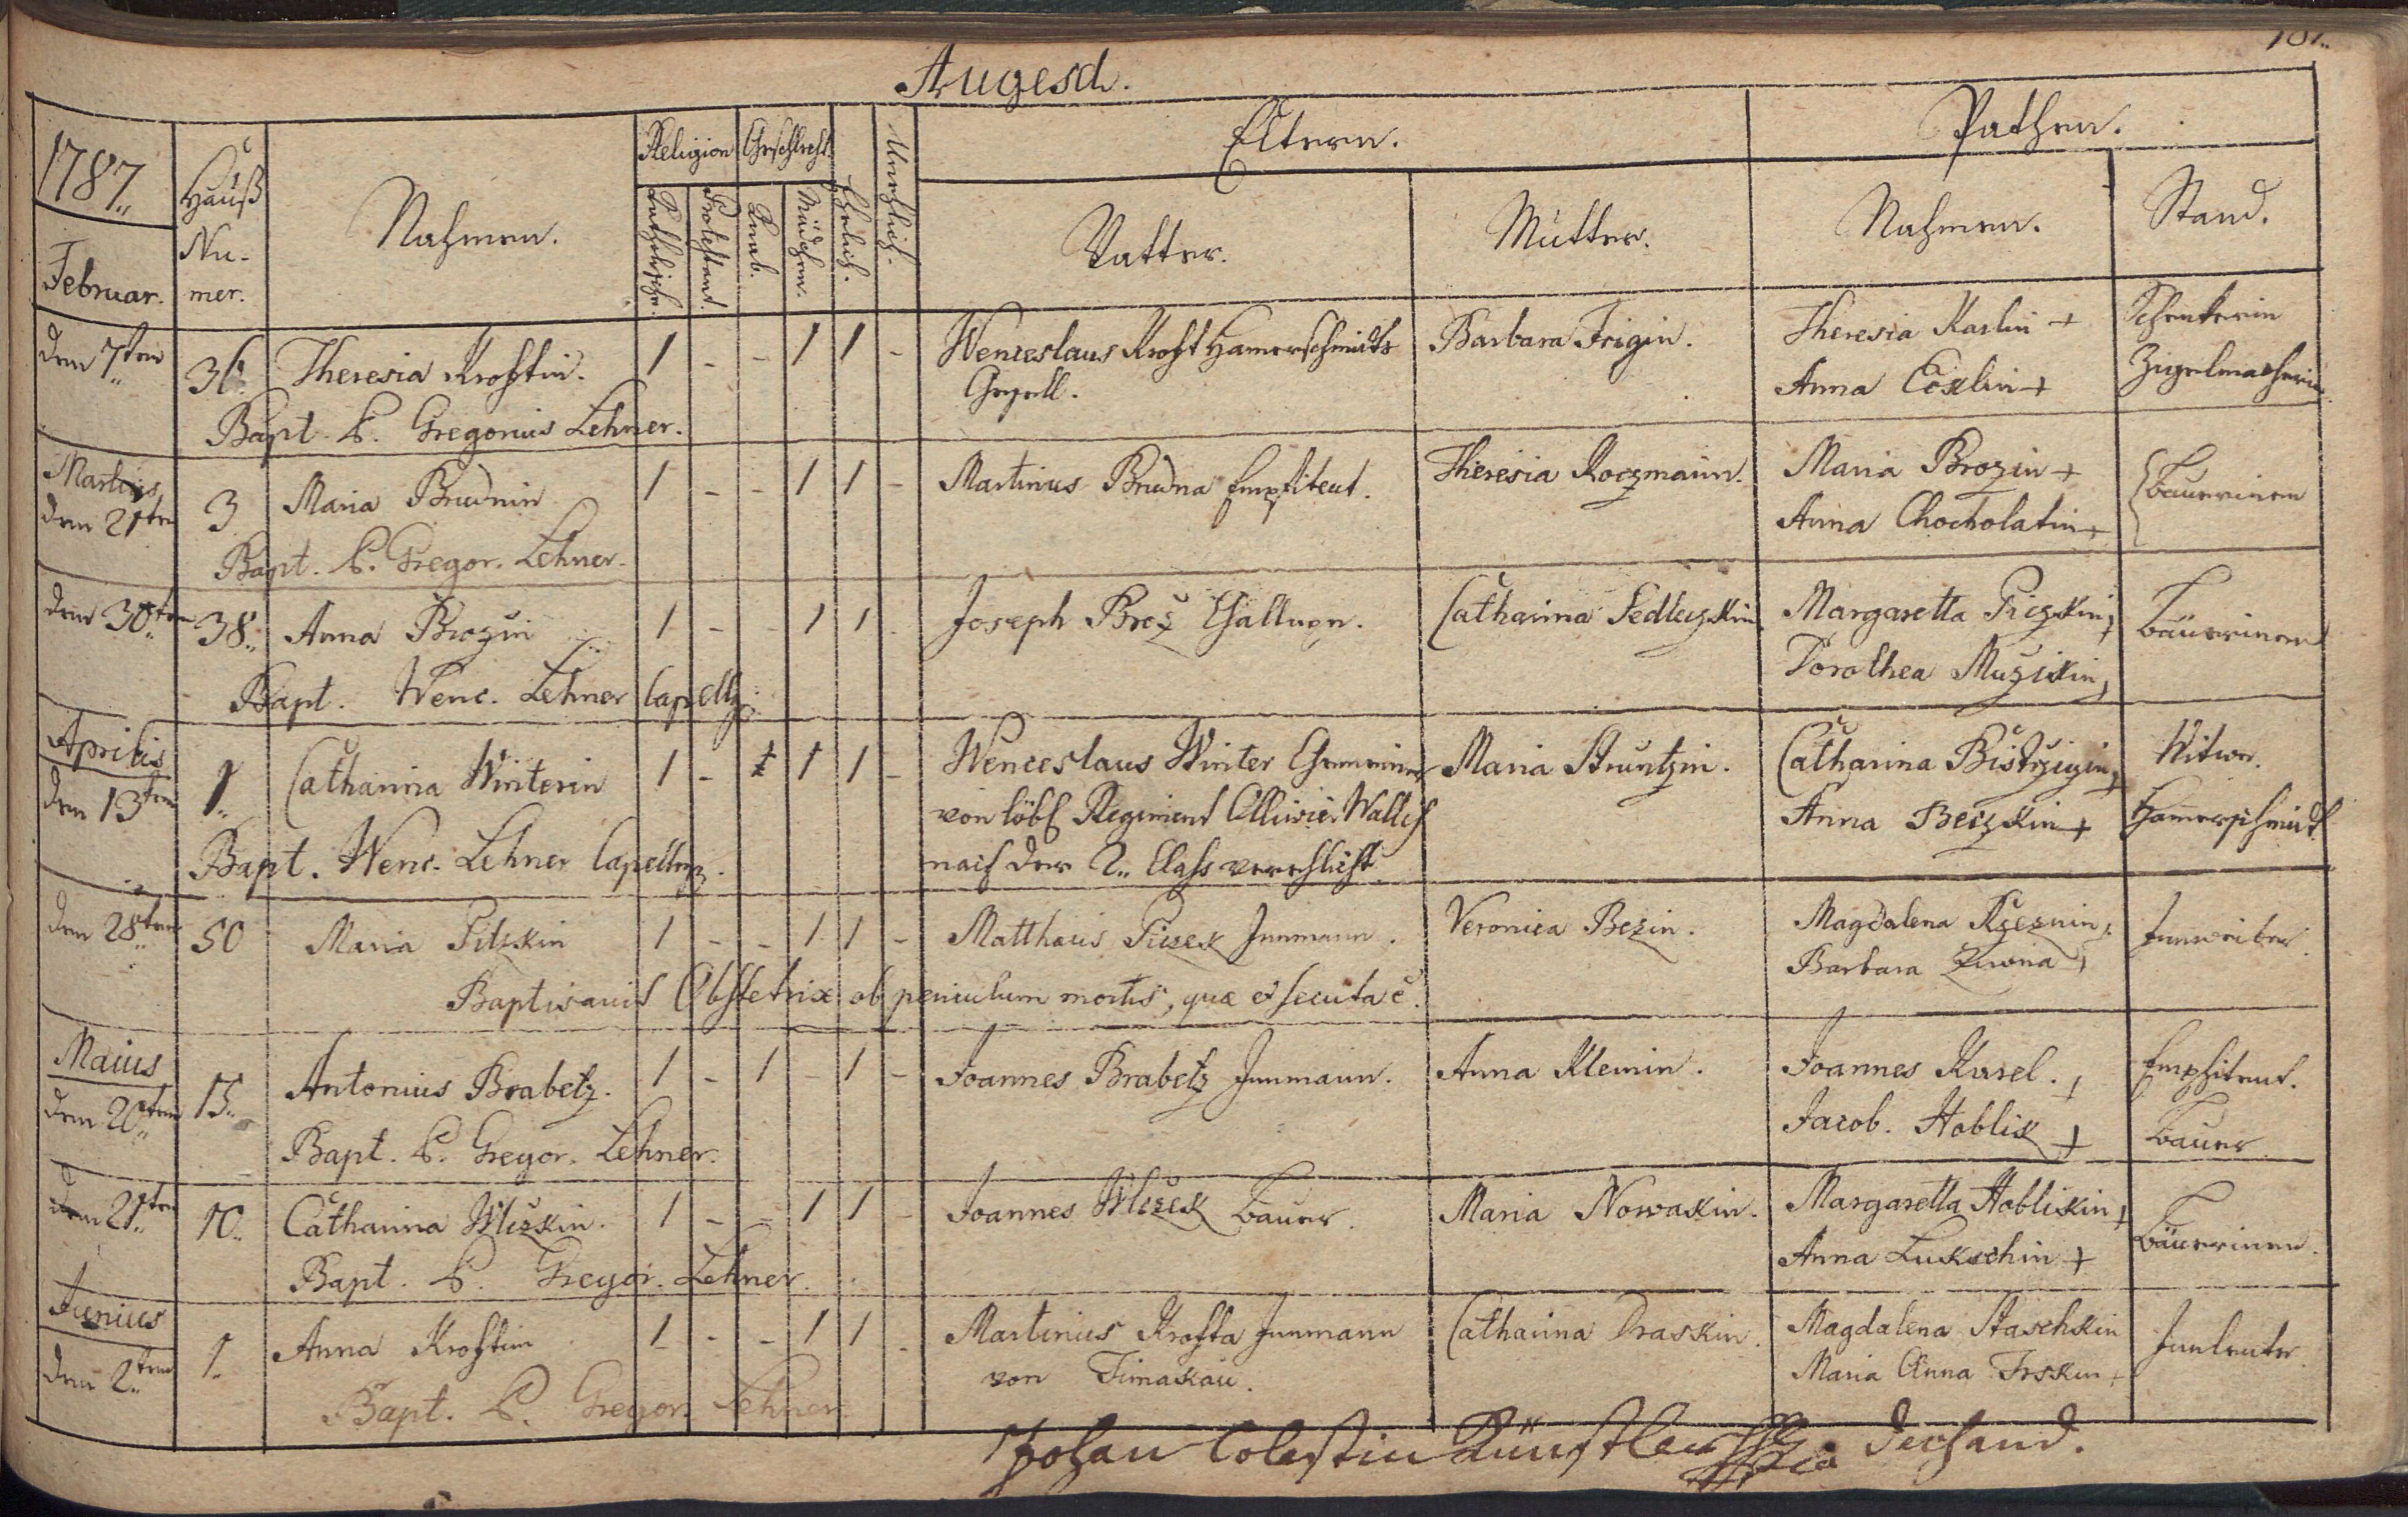 181.
Augesd.
1787. Hauß Nu-mer. Nahmen. Religion Geschlecht Ehelich. Unehlich. Eltern. Pathen.
Februar. Catholische. Protestant. Knab. Mädchen. Vatter. Mutter. Nahmen. Stand.
den 7ten 36. Theresia Kroftin. 1 - - 1 1 - Wenceslaus Kroft Hamerschmidts Barbara Frigin. Theresia Karlin + Schenkerin
Gesell. Anna Coxlin + Zigelmacherin
Bapt. P. Gregorius Lehner.
Martius
den 21ten 3 Maria Brudnin 1 - - 1 1 - Martinus Brudna Empfiteut. Theresia Koczmanin. Maria Brozin + Bauerinen
Anna Chocholatin +
Bapt. P. Gregor. Lehner.
den 30ten 38. Anna Brozin 1 - - 1 1 Joseph Broz Chalupn. Catharina Sedleczkin Margaretta Piczkin + Bäuerinen
Dorothea Muzikin +
Bapt. Wenc. Lehner Capell.
Aprilis
den 13ten 1. Catharina Winterin 1 - 1 1 - Wenceslaus Winter Gemeiner Maria Stuntzin. Catharina Bistrzigin + Witwe.
von löbl. Regiment Olliwier Wallis Anna Beczkin + Hamerschmidt
nach der 2. Class verehlicht.
Bapt. Wenc. Lehner Capell.
den 28ten 50 Maria Pitzkin 1 - - 1 1 - Matthaus Piczek Innmann. Veronica Bezin. Magdalena Rzeznin + Innweiber
Barbara Zuwna +
Baptisavit Obstetrix ob periculum mortis, quæ et secuta e.
Maius
den 20ten 15. Antonius Brabetz. 1 - 1 1 - Joannes Brabetz Innmann. Anna Klemin. Joannes Karel. + Emphiteut.
Jacob. Hoblik + Bauer
Bapt. P. Gregor. Lehner.
den 21ten 10. Catharina Wlczkin. 1 - - 1 1 - Joannes Wlczek Bauer. Maria Nowakin. Margaretta Hoblikin + Bäuerinen.
Anna Lukschin +
Bapt. P. Gregor. Lehner.
Junius
den 2ten 1. Anna Kroftin 1 - - 1 1 - Martinus Krofta Innmann Catharina Draskin. Magdalena Staschkin Innleuter.
von Timakau. Maria Anna Irskin +
Bapt. P. Gregor. Lehner
Johan Colestin Künstler Dechand.